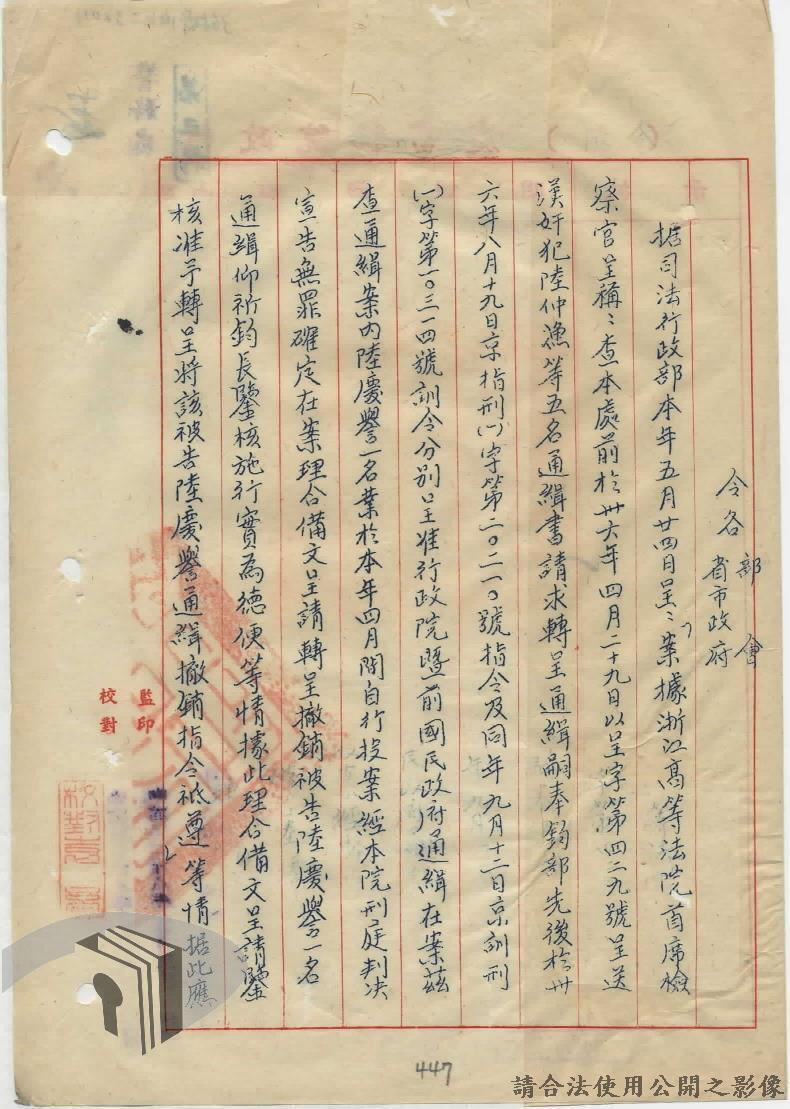 令各部會
省市政府
據司法行政部本年五月廿四日呈：「案據浙江高等法院首席檢
察官呈稱：查本處前於卅六年四月二十九日以呈字第四二九號呈送
漢奸犯陸仲漁等五名通緝書請求轉呈通緝嗣奉鈞部先後於卅
六年八月十九日京指刑㈠字第二〇二一〇號指令及同年九月十二日京訓刑
㈠字第一〇三一四號訓令分別呈准行政院暨前國民政府通緝在案茲
查通緝案內陸慶譽一名業於本年四月間自行投案經本院刑庭判決
宣告無罪確定在案理合備文呈請轉呈撤銷被告陸慶譽一名
通緝仰祈鈞長鑒核施行實為德便等情據此理合備文呈請鑒
核准予轉呈將該被告陸慶譽通緝撤銷指令祗遵」等情据此應
監印
校對
447
請合法使用公開之影像